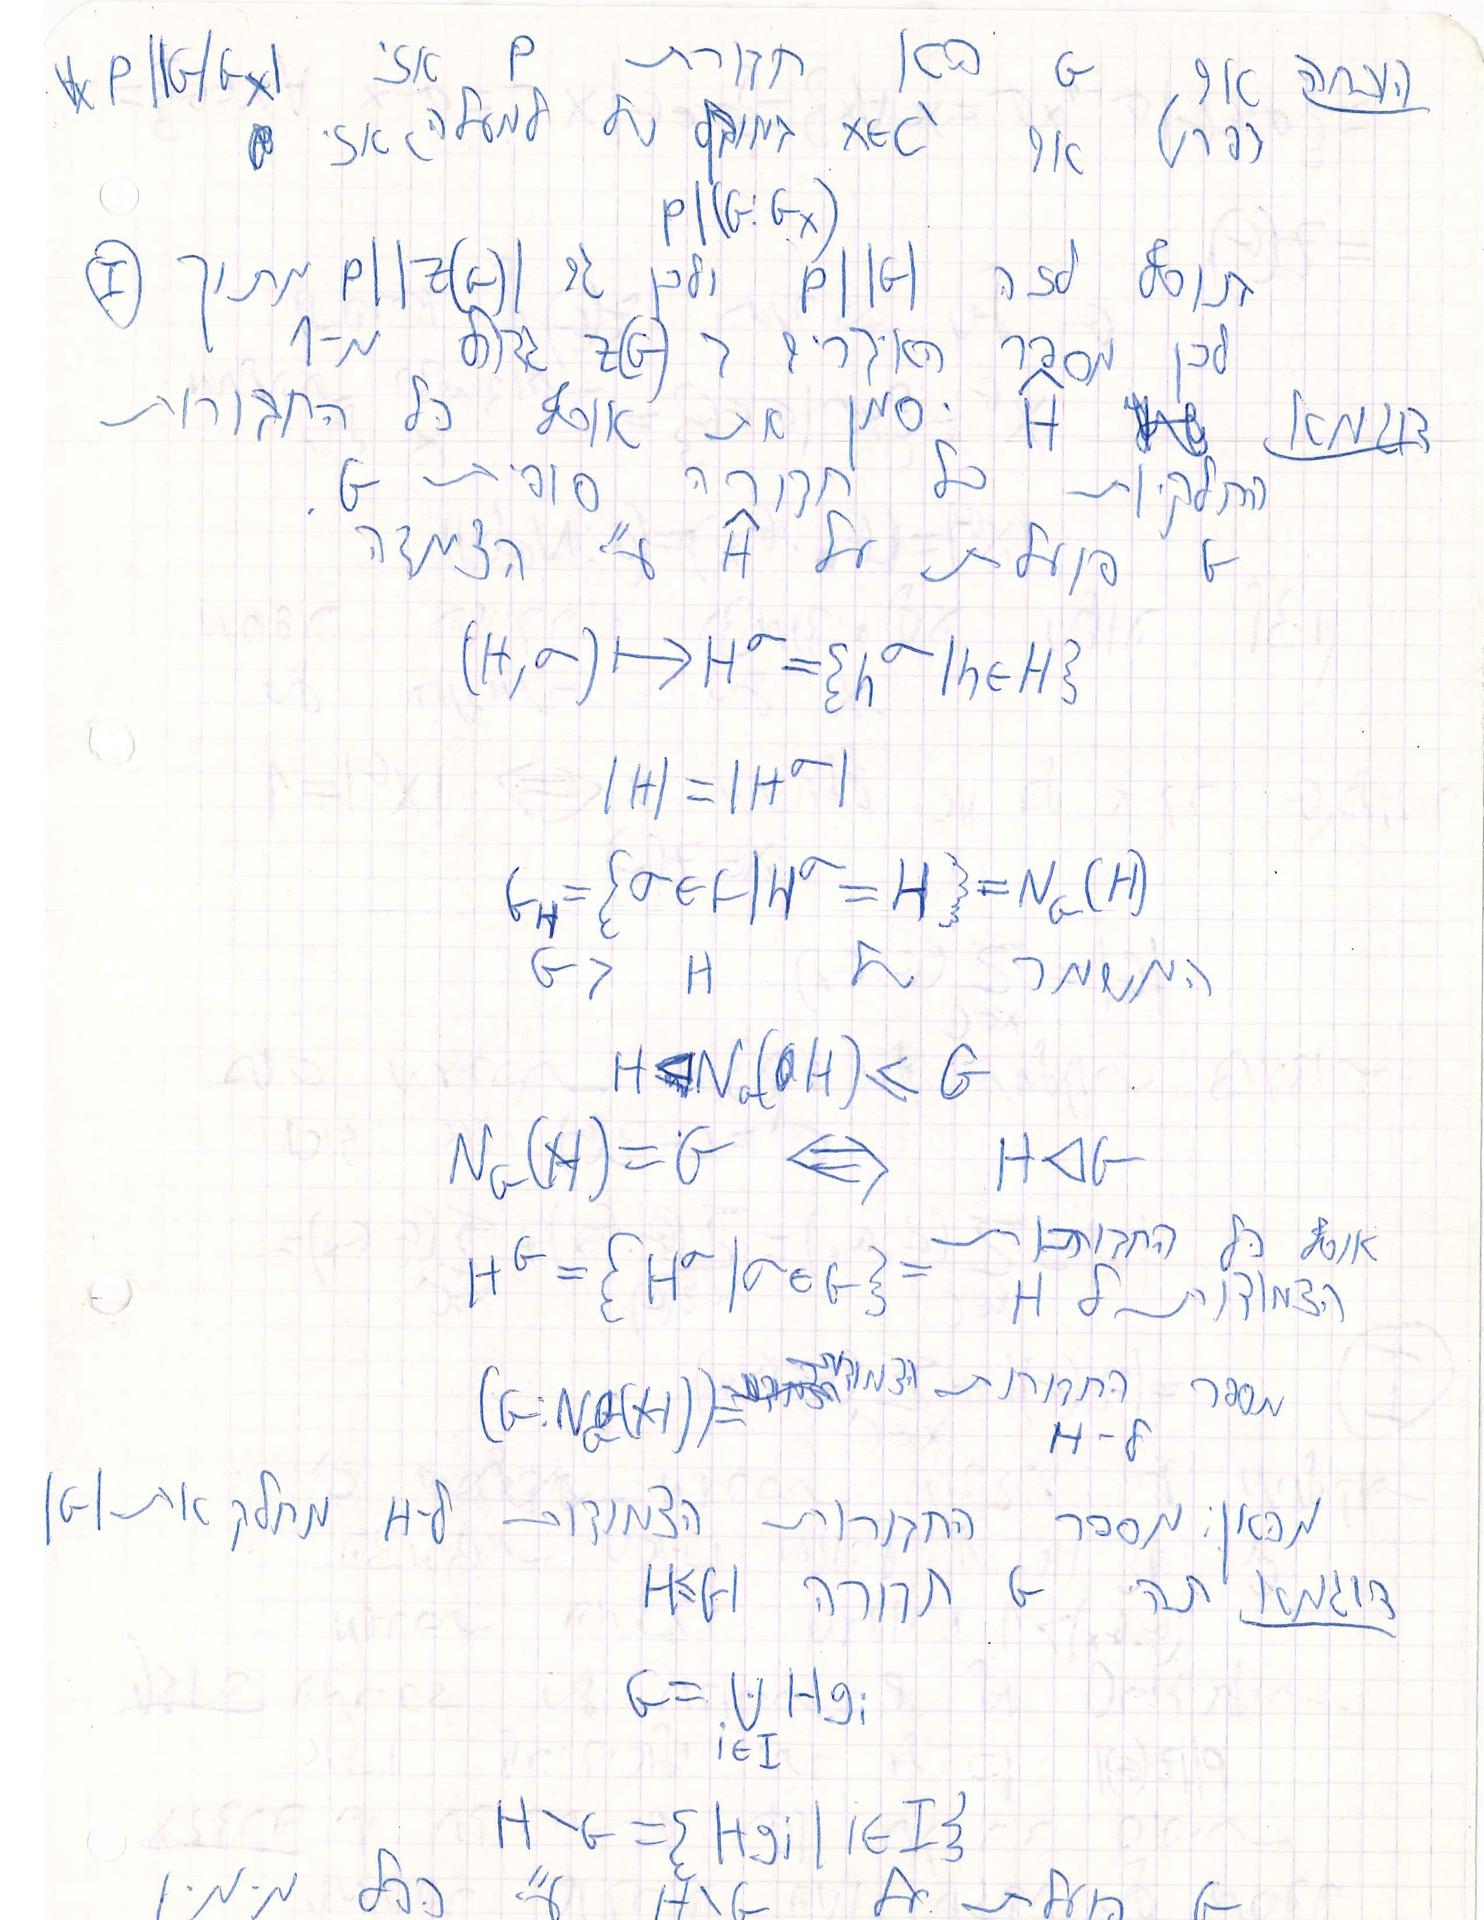 הערה אם G היא חבורת p אזי p||G/G_x|
בפרט אם x∈C' במובן של למעלה, אזי
p|(G:G_x)
בנוסף לזה p||G| ולכן גם p||Z(G)| מתוך Ⓘ
לכן מספר האיברים ב Z(G) גדול מ-1
דוגמא Ĥ יסמן את אוסף כל החבורות
החלקיות כל חבורה סופית G.
G פועלת על Ĥ ע"י הצמדה
(H,σ)↦H^σ={h^σ|h∈H}
|H|=|H^σ|
G_H={σ∈G|H^σ=H}=N_G(H)
המשמר של H ב G
H◁N_G(H)≤G
N_G(H)=G ⟺ H◁G
H^G={H^σ|σ∈G}= אוסף כל החבורות
הצמודות ל H
(G:N_G(H))= מספר החבורות הצמודות
ל-H
מכאן: מספר החבורות הצמודות ל-H מחלק את |G|
דוגמא תהי G חבורה H≤G
G=⨃Hg_i
i∈I
H\G={Hg_i|i∈I}
G פועלת על H\G ע"י הכפל מימין